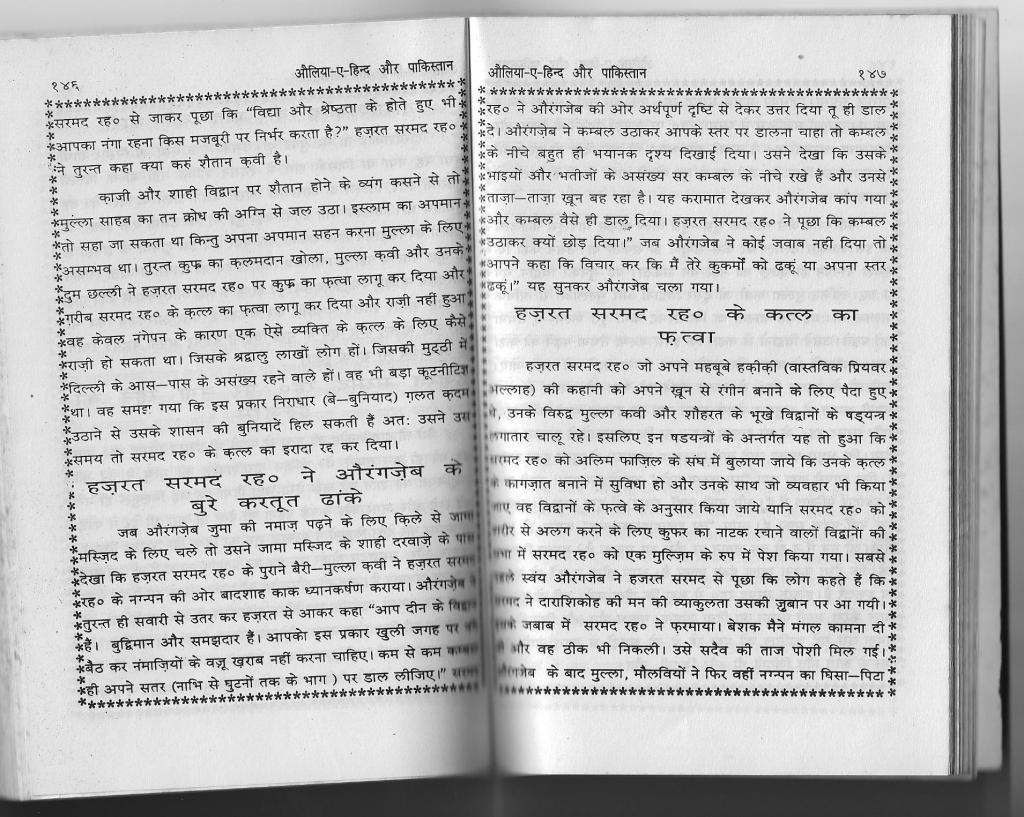 १४६
औलिया-ए-हिन्द और पाकिस्तान
सरमद रह० से जाकर पूछा कि "विद्या और श्रेष्ठता के होते हुए भी
आपका नंगा रहना किस मजबूरी पर निर्भर करता है?" हज़रत सरमद रह०
ने तुरन्त कहा क्या करुं शैतान क़वी है।
क़ाजी और शाही विद्वान पर शैतान होने के व्यंग कसने से तो
मुल्ला साहब का तन क्रोध की अग्नि से जल उठा। इस्लाम का अपमान
तो सहा जा सकता था किन्तु अपना अपमान सहन करना मुल्ला के लिए
असम्भव था। तुरन्त कुफ्र का क़लमदान खोला, मुल्ला क़वी और उनके
दुम छल्ली ने हज़रत सरमद रह० पर कुफ्र का फ़त्वा लागू कर दिया और
ग़रीब सरमद रह० के क़त्ल का फ़त्वा लागू कर दिया और राज़ी नहीं हुआ
वह केवल नंगेपन के कारण एक ऐसे व्यक्ति के क़त्ल के लिए कैसे
राज़ी हो सकता था। जिसके श्रद्वालु लाखों लोग हों। जिसकी मुट्ठी में
दिल्ली के आस–पास के असंख्य रहने वाले हों। वह भी बड़ा कूटनीतिज्ञ
था। वह समझ गया कि इस प्रकार निराधार (बे–बुनियाद) ग़लत क़दम
उठाने से उसके शासन की बुनियादें हिल सकती हैं अतः उसने उस
समय तो सरमद रह० के क़त्ल का इरादा रद्द कर दिया।
हज़रत सरमद रह० ने औरंगज़ेब के
बुरे करतूत ढांके
जब औरंगज़ेब जुमा की नमाज़ पढ़ने के लिए क़िले से जामा
मस्जिद के लिए चले तो उसने जामा मस्जिद के शाही दरवाज़े के पास
देखा कि हज़रत सरमद रह० के पुराने बैरी–मुल्ला क़वी ने हज़रत सरमद
रह० के नग्न्पन की ओर बादशाह काक ध्यानकर्षण कराया। औरंगज़ेब ने
तुरन्त ही सवारी से उतर कर हज़रत से आकर कहा "आप दीन के विद्वान
हैं। बुद्विमान और समझदार हैं। आपको इस प्रकार खुली जगह पर
बैठ कर नंमाज़ियों के वज़ू ख़राब नहीं करना चाहिए। कम से कम कम्बल
ही अपने सतर (नाभि से घुटनों तक के भाग ) पर डाल लीजिए।" सरमद
औलिया-ए-हिन्द और पाकिस्तान
१४७
रह० ने औरंगजेब की ओर अर्थपूर्ण दृष्टि से देकर उत्तर दिया तू ही डाल
दे। औरंगज़ेब ने कम्बल उठाकर आपके स्तर पर डालना चाहा तो कम्बल
के नीचे बहुत ही भयानक दृश्य दिखाई दिया। उसने देखा कि उसके
भाइयों और भतीजों के असंख्य सर कम्बल के नीचे रखे हैं और उनसे
ताज़ा–ताज़ा ख़ून बह रहा है। यह करामात देखकर औरंगजेब कांप गया
और कम्बल वैसे ही डाल दिया। हज़रत सरमद रह० ने पूछा कि कम्बल
उठाकर क्यों छोड़ दिया।" जब औरंगजेब ने कोई जवाब नही दिया तो
आपने कहा कि विचार कर कि मैं तेरे कुकर्मों को ढकूं या अपना स्तर
ढकूं।" यह सुनकर औरंगजेब चला गया।
हज़रत सरमद रह० के कत्ल का
फ़त्वा
हज़रत सरमद रह० जो अपने महबूबे हक़ीक़ी (वास्तविक प्रियवर
अल्लाह) की कहानी को अपने ख़ून से रंगीन बनाने के लिए पैदा हुए
थे, उनके विरुद्व मुल्ला कवी और शौहरत के भूखे विद्वानों के षड्यन्त्र
लगातार चालू रहे। इसलिए इन षडयन्त्रों के अन्तर्गत यह तो हुआ कि
सरमद रह० को अलिम फाज़िल के संघ में बुलाया जाये कि उनके क़त्ल
के कागज़ात बनाने में सुविधा हो और उनके साथ जो व्यवहार भी किया
जाए वह विद्वानों के फ़त्वे के अनुसार किया जाये यानि सरमद रह० को
शरीर से अलग करने के लिए कुफर का नाटक रचाने वालों विद्वानों की
सभा में सरमद रह० को एक मुल्ज़िम के रुप में पेश किया गया। सबसे
पहले स्वंय औरंगजेब ने हजरत सरमद से पूछा कि लोग कहते हैं कि
सरमद ने दाराशिकोह की मन की व्याकुलता उसकी ज़ुबान पर आ गयी।
इसके जबाब में सरमद रह० ने फ़रमाया। बेशक मैने मंगल कामना दी
थी और वह ठीक भी निकली। उसे सदैव की ताज पोशी मिल गई।
औरंगजेब के बाद मुल्ला, मौलवियों ने फिर वहीं नग्न्पन का घिसा–पिटा